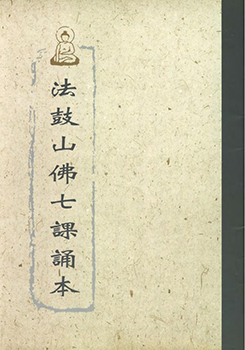 法鼓山佛七課誦本